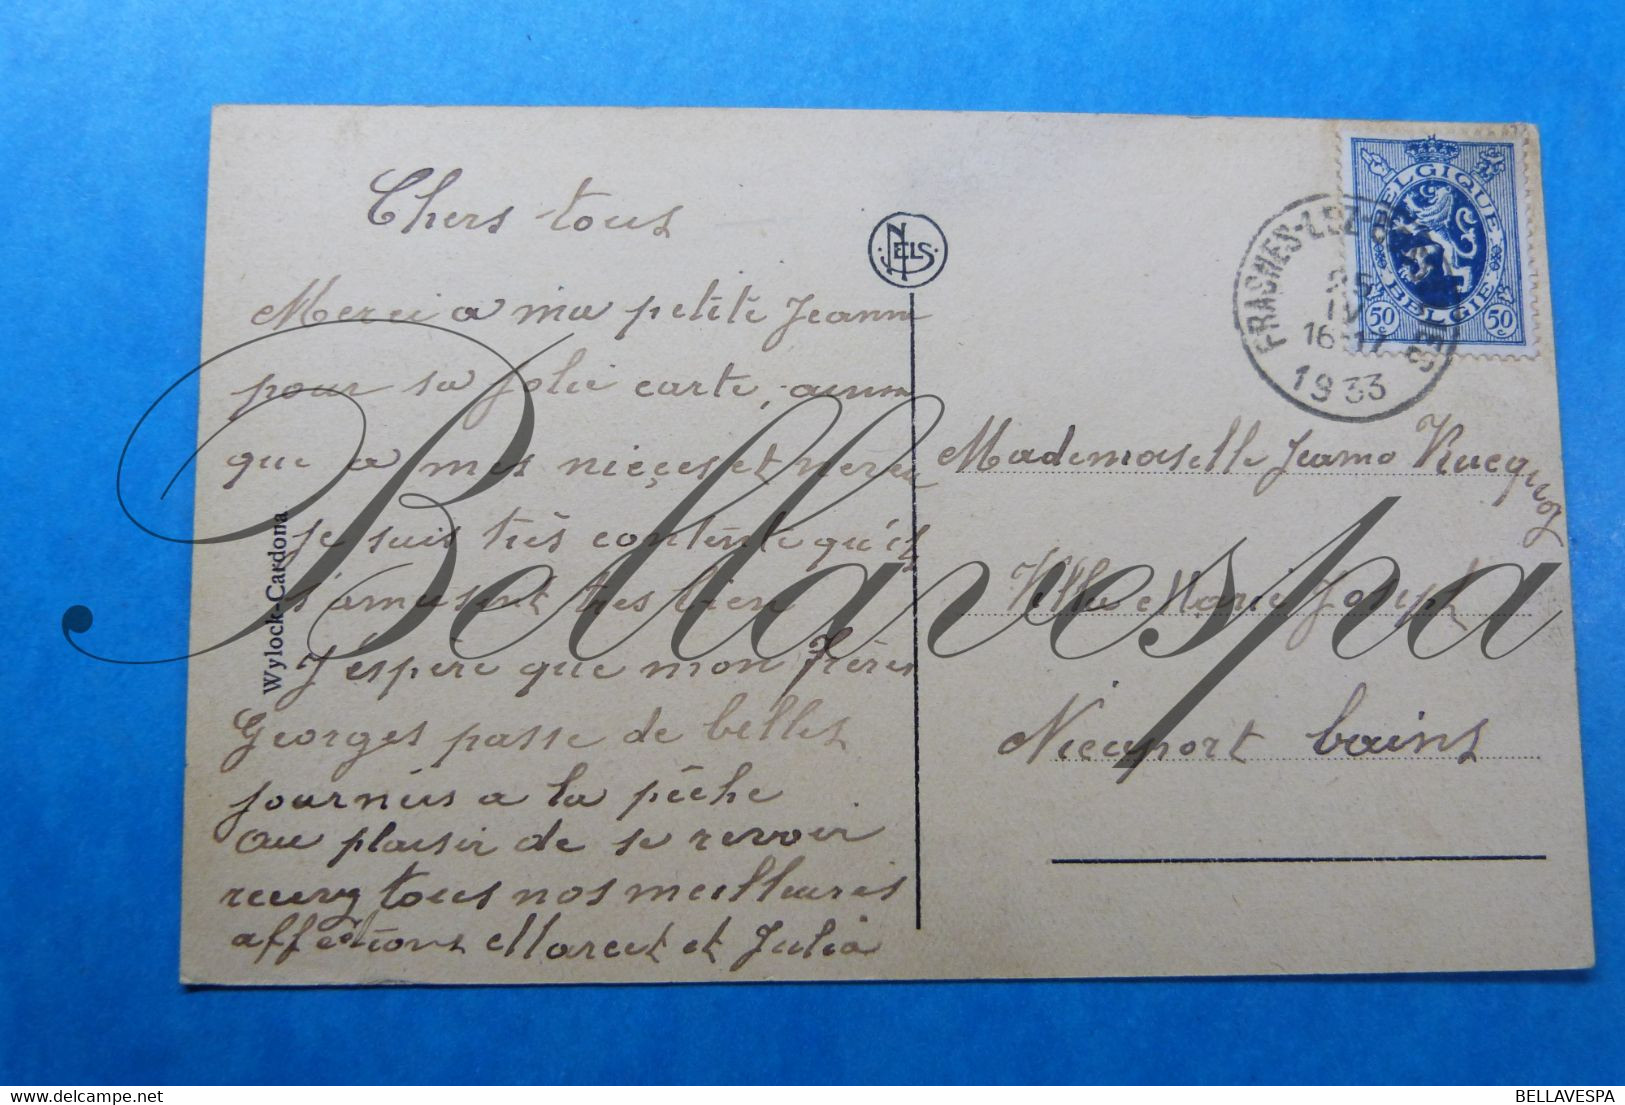 Chers tous
Merci a ma petite Jeanne
pour sa jolie carte, ainsi
que a mes nièces et neveu
je suis très contente qu'ils
s'amusent tres bien
J'espère que mon frères
Georges passe de belles
journéés a la pêche
au plaisir de se revoir
recevez tous nos meilleures
affections Marcel et Julia
Wylock-Cardona
NELS
FRASNES-LEZ-B
16-17
1933
BELGIQUE
BELGIE
50 c
50 c
Mademoiselle Jeanne
Villa Marie Joseph
Nieuport bains
Bellavespa
BELLAVESPA